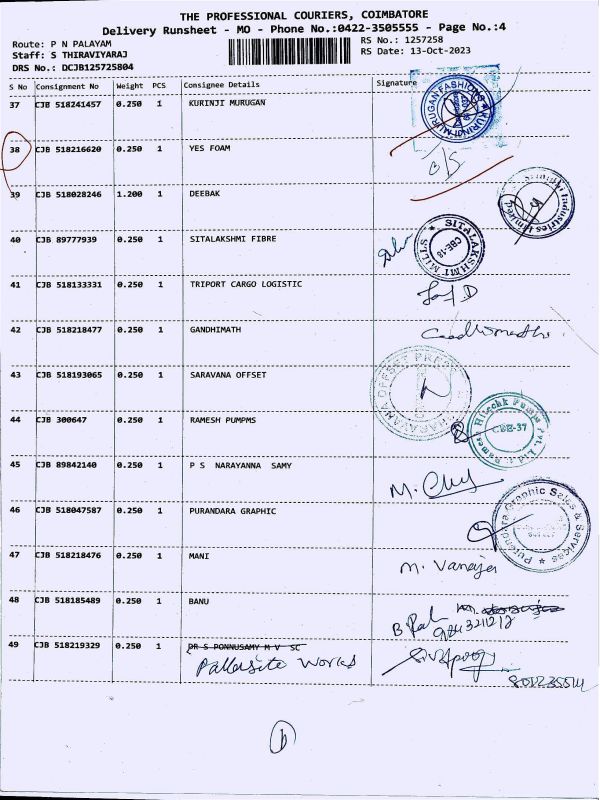 THE PROFESSIONAL COURIERS, COIMBATORE
Delivery Runsheet - MO - Phone No.:0422-3505555 - Page No.:4
Route: P N PALAYAM RS No.: 1257258
Staff: S THIRAVIYARAJ RS Date: 13-Oct-2023
DRS No.: DCJB125725804
S No Consignment No Weight PCS Consignee Details Signature
37 CJB 518241457 0.250 1 KURINJI MURUGAN
38 CJB 518216620 0.250 1 YES FOAM
39 CJB 518028246 1.200 1 DEEBAK
40 CJB 89777939 0.250 1 SITALAKSHMI FIBRE SITALAKSHMI MILLS CBE-18
41 CJB 518133331 0.250 1 TRIPORT CARGO LOGISTIC
42 CJB 518218477 0.250 1 GANDHIMATH
43 CJB 518193065 0.250 1 SARAVANA OFFSET
44 CJB 300647 0.250 1 RAMESH PUMPMS CBE-37
45 CJB 89842140 0.250 1 P S NARAYANNA SAMY
46 CJB 518047587 0.250 1 PURANDARA GRAPHIC Purandara Graphic Sales & Services
47 CJB 518218476 0.250 1 MANI M. Vanaja
48 CJB 518185489 0.250 1 BANU
49 CJB 518219329 0.250 1 DR S PONNUSAMY M V SC
Works